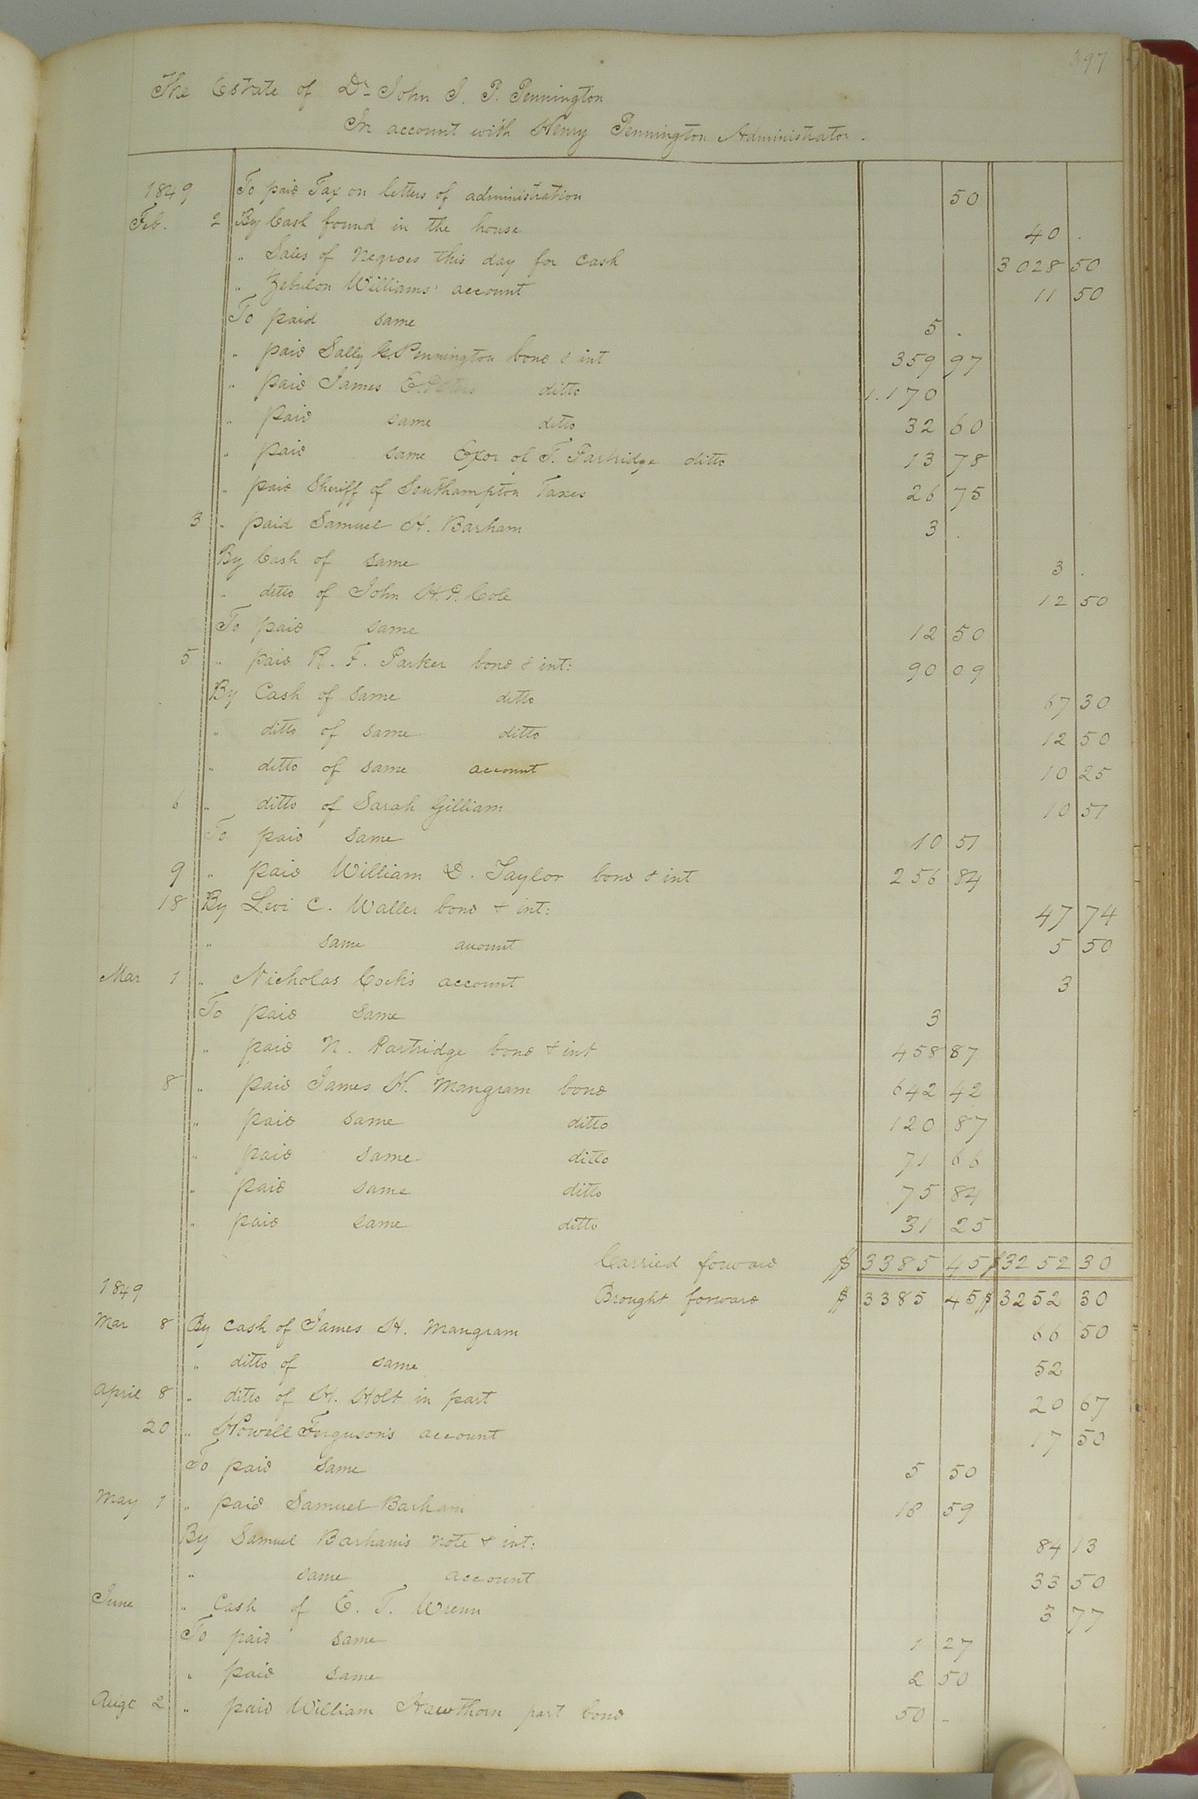 397
The Estate of Dr John J. P. Pennington
In account with Henry Pennington Administrator.
1849 To paid Tax on letters of administration 50
Feb. 2 By Cash found in the house 40 .
" Sales of Negroes this day for cash 3028 50
" Zebulon Williams' account 11 50
To paid same 5 .
" paid Sally G. Pennington bond & int 359 97
" paid James ditto 1.170
" paid same ditto 32 60
" paid same Exor of T. Partridge ditto 13 78
" paid Sheriff of Southampton Taxes 26 75
3 " paid Samuel H. Barham 3 .
By Cash of same 3 .
" ditto of John H. P. Cole 12 50
To paid same 12 50
5 " paid R. F. Parker bond & int: 90 09
By Cash of same ditto 67 30
" ditto of same ditto 12 50
" ditto of same account 10 25
6 " ditto of Sarah Gilliam 10 51
To paid same 10 51
9 " paid William D. Taylor bond & int 256 84
18 By Levi C. Waller bond & int: 47 74
" same account 5 50
Mar 1 " Nicholas Cock's account 3
To paid same 3
" paid N. Partridge bond & int 458 87
8 " paid James H. Mangram bond 642 42
" paid same ditto 120 87
" paid same ditto 71 66
" paid same ditto 75 84
" paid same ditto 31 25
Carried forward $ 3385 45 $ 3252 30
1849 Brought forward $ 3385 45 $ 3252 30
Mar 8 By cash of James H. Mangram 66 50
" ditto of same 52
April 8 " ditto of H. Holt in part 20 67
20 " Howell Ferguson's account 17 50
To paid same 5 50
May 1 " paid Samuel Barham 18 59
By Samuel Barham's note & int: 84 13
" same account 33 50
June " Cash of E. T. Wrenn 3 77
To paid same 1 27
" paid same 2 50
Augt 2 " paid William Hawthorn part bond 50 -